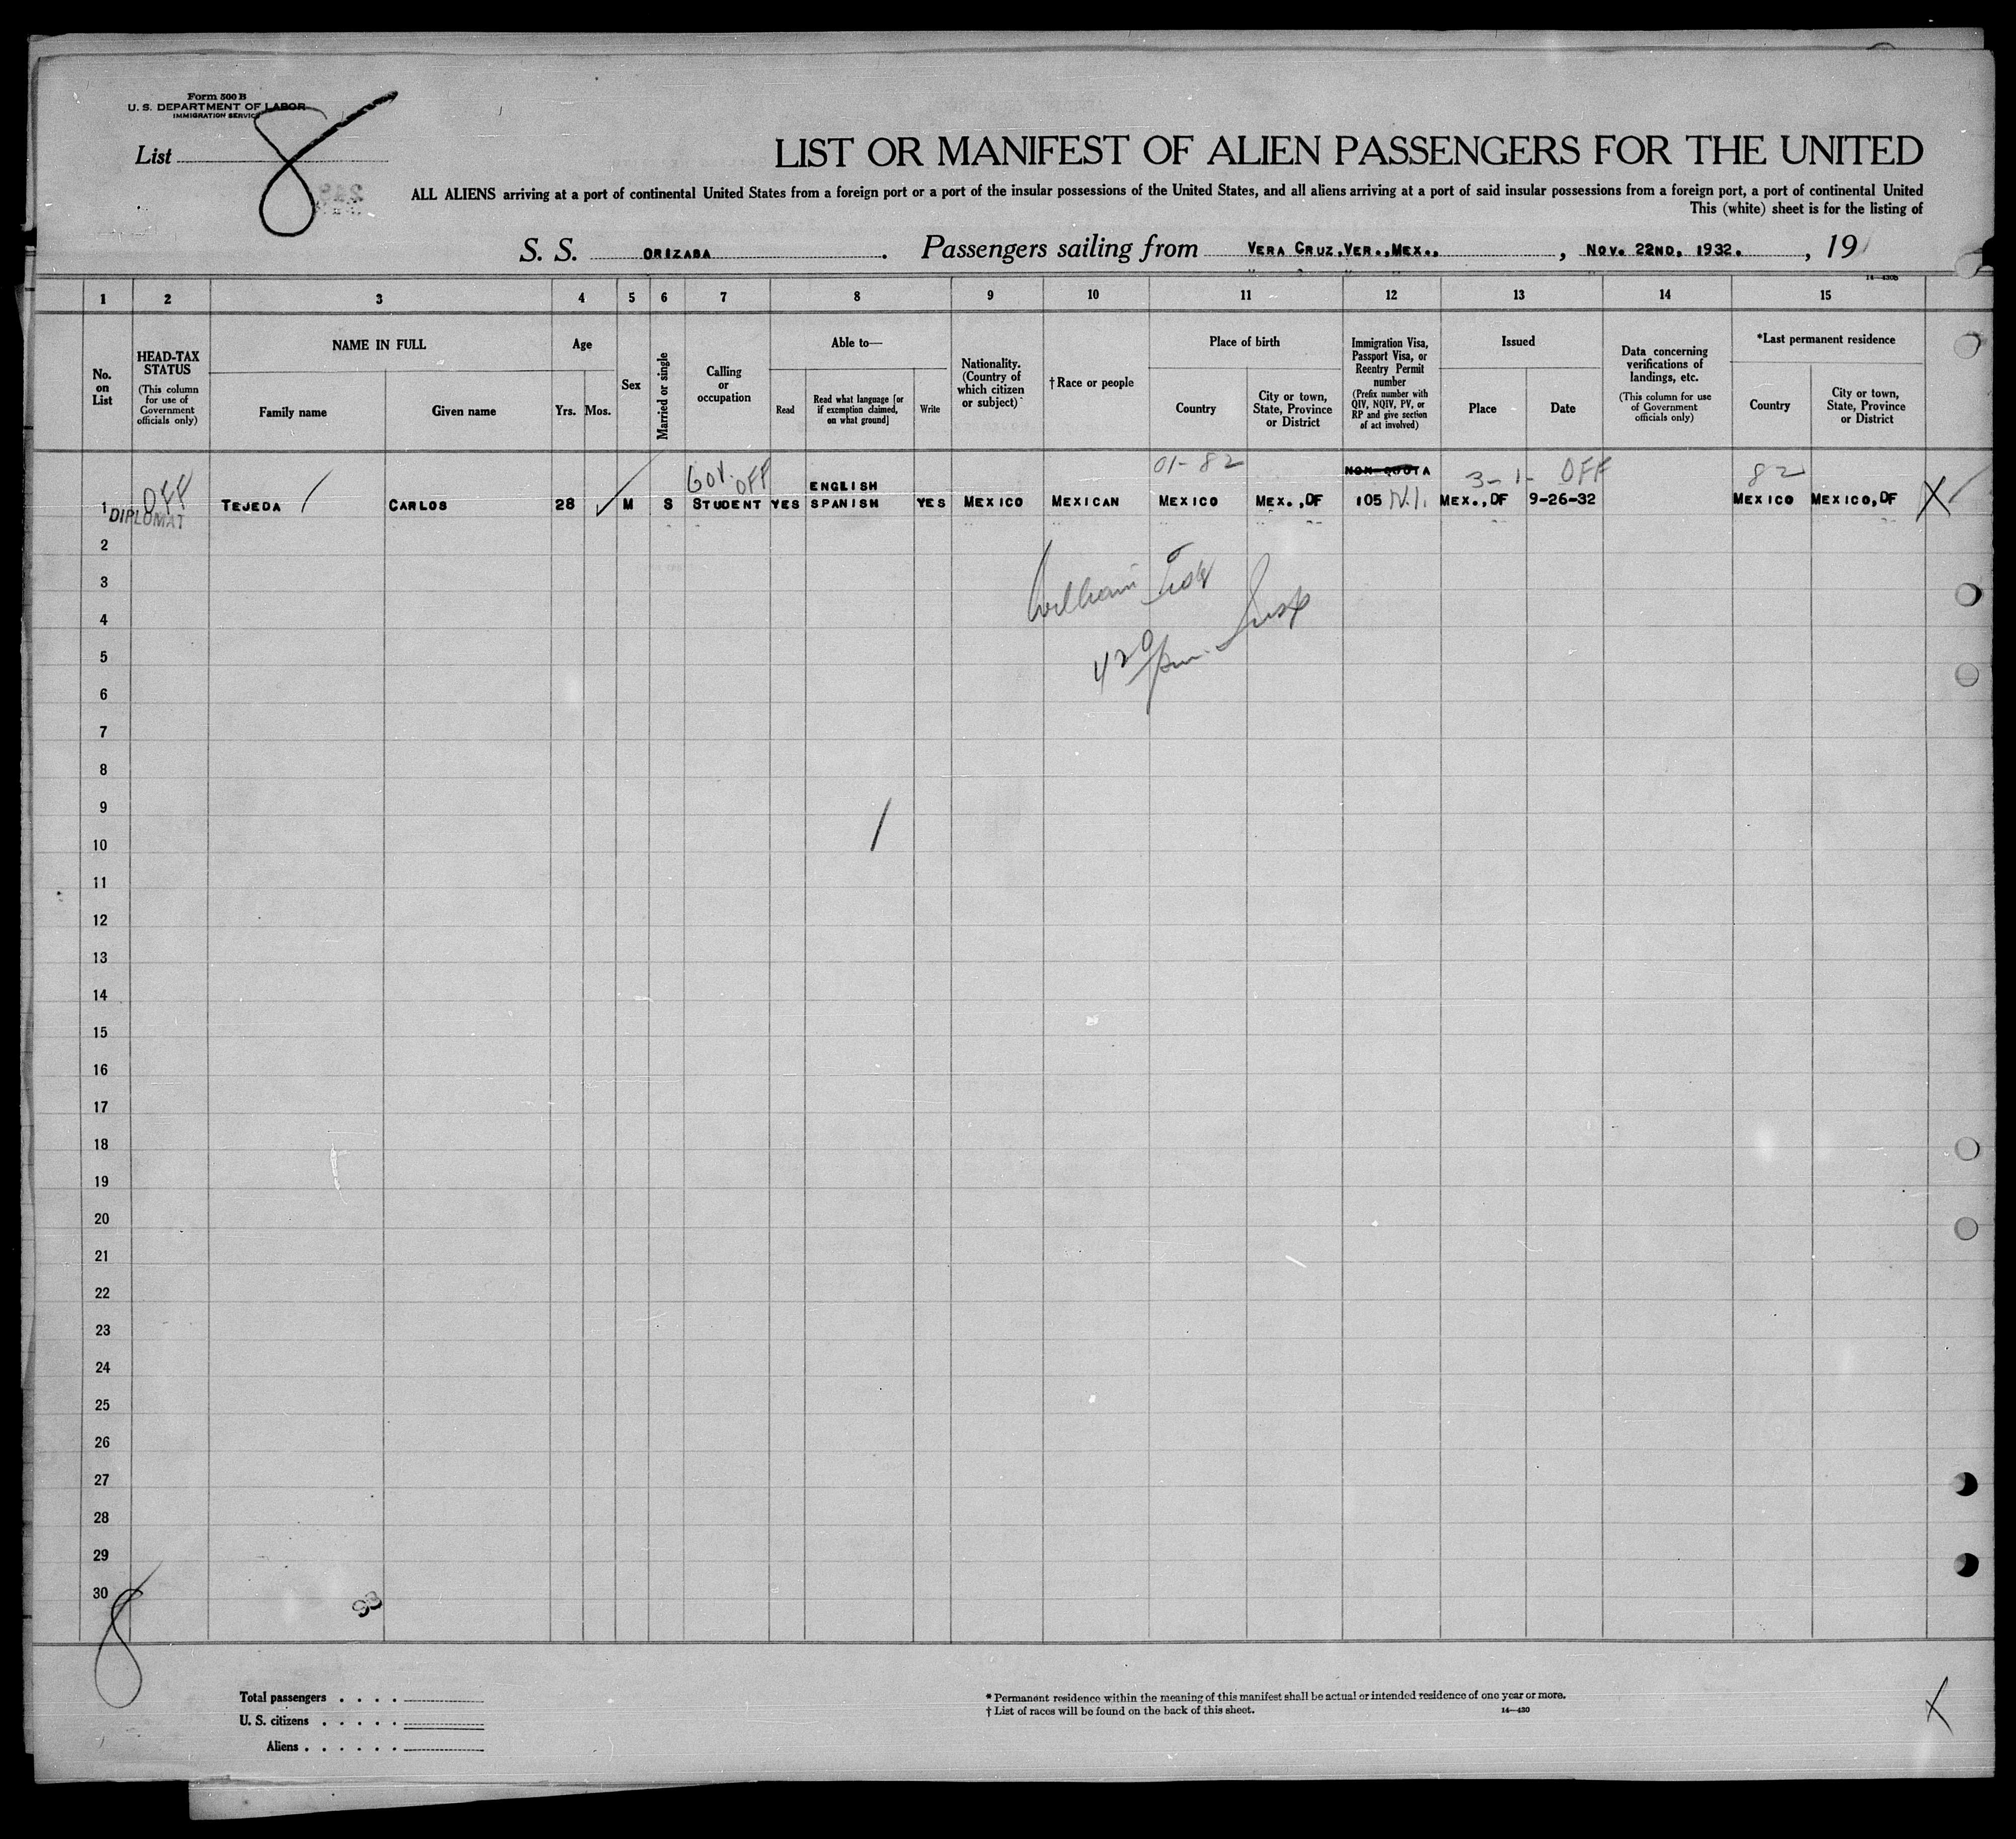 Form 500 B
U. S. DEPARTMENT OF LABOR
IMMIGRATION SERVICE
List 8
LIST OR MANIFEST OF ALIEN PASSENGERS FOR THE UNITED
ALL ALIENS arriving at a port of continental United States from a foreign port or a port of the insular possessions of the United States, and all aliens arriving at a port of said insular possessions from a foreign port, a port of continental United
This (white) sheet is for the listing of
S. S. ORIZABA. Passengers sailing from VERA CRUZ,VER.,MEX., , NOV. 22ND, 1932. , 19
14—430b
1 2 3 4 5 6 7 8 9 10 11 12 13 14 15
No. on List
HEAD-TAX STATUS
(This column for use of Government officials only)
NAME IN FULL
Family name
Given name
Age
Yrs. Mos.
Sex
Married or single
Calling or occupation
Able to—
Read
Read what language [or if exemption claimed, on what ground]
Write
Nationality. (Country of which citizen or subject)
†Race or people
Place of birth
Country
City or town, State, Province or District
Immigration Visa, Passport Visa, or Reentry Permit number
(Prefix number with QIV, NQIV, PV, or RP and give section of act involved)
Issued
Place
Date
Data concerning verifications of landings, etc.
(This column for use of Government officials only)
*Last permanent residence
Country
City or town, State, Province or District
OFF GOV. OFF ENGLISH 01-82 NON-QUOTA 3-1- OFF 82
1 TEJEDA CARLOS 28 M S STUDENT YES SPANISH YES MEXICO MEXICAN MEXICO MEX.,DF 105 N.I. MEX.,DF 9-26-32 MEXICO MEXICO,DF X
DIPLOMAT
2
William
3
4
Insp
420 pm
5
6
7
8
9
10
11
12
13
14
15
16
17
18
19
20
21
22
23
24
25
26
27
28
29
30
93
8
Total passengers . . . .
U. S. citizens . . . . .
Aliens . . . . . .
* Permanent residence within the meaning of this manifest shall be actual or intended residence of one year or more.
† List of races will be found on the back of this sheet.
14—430
X